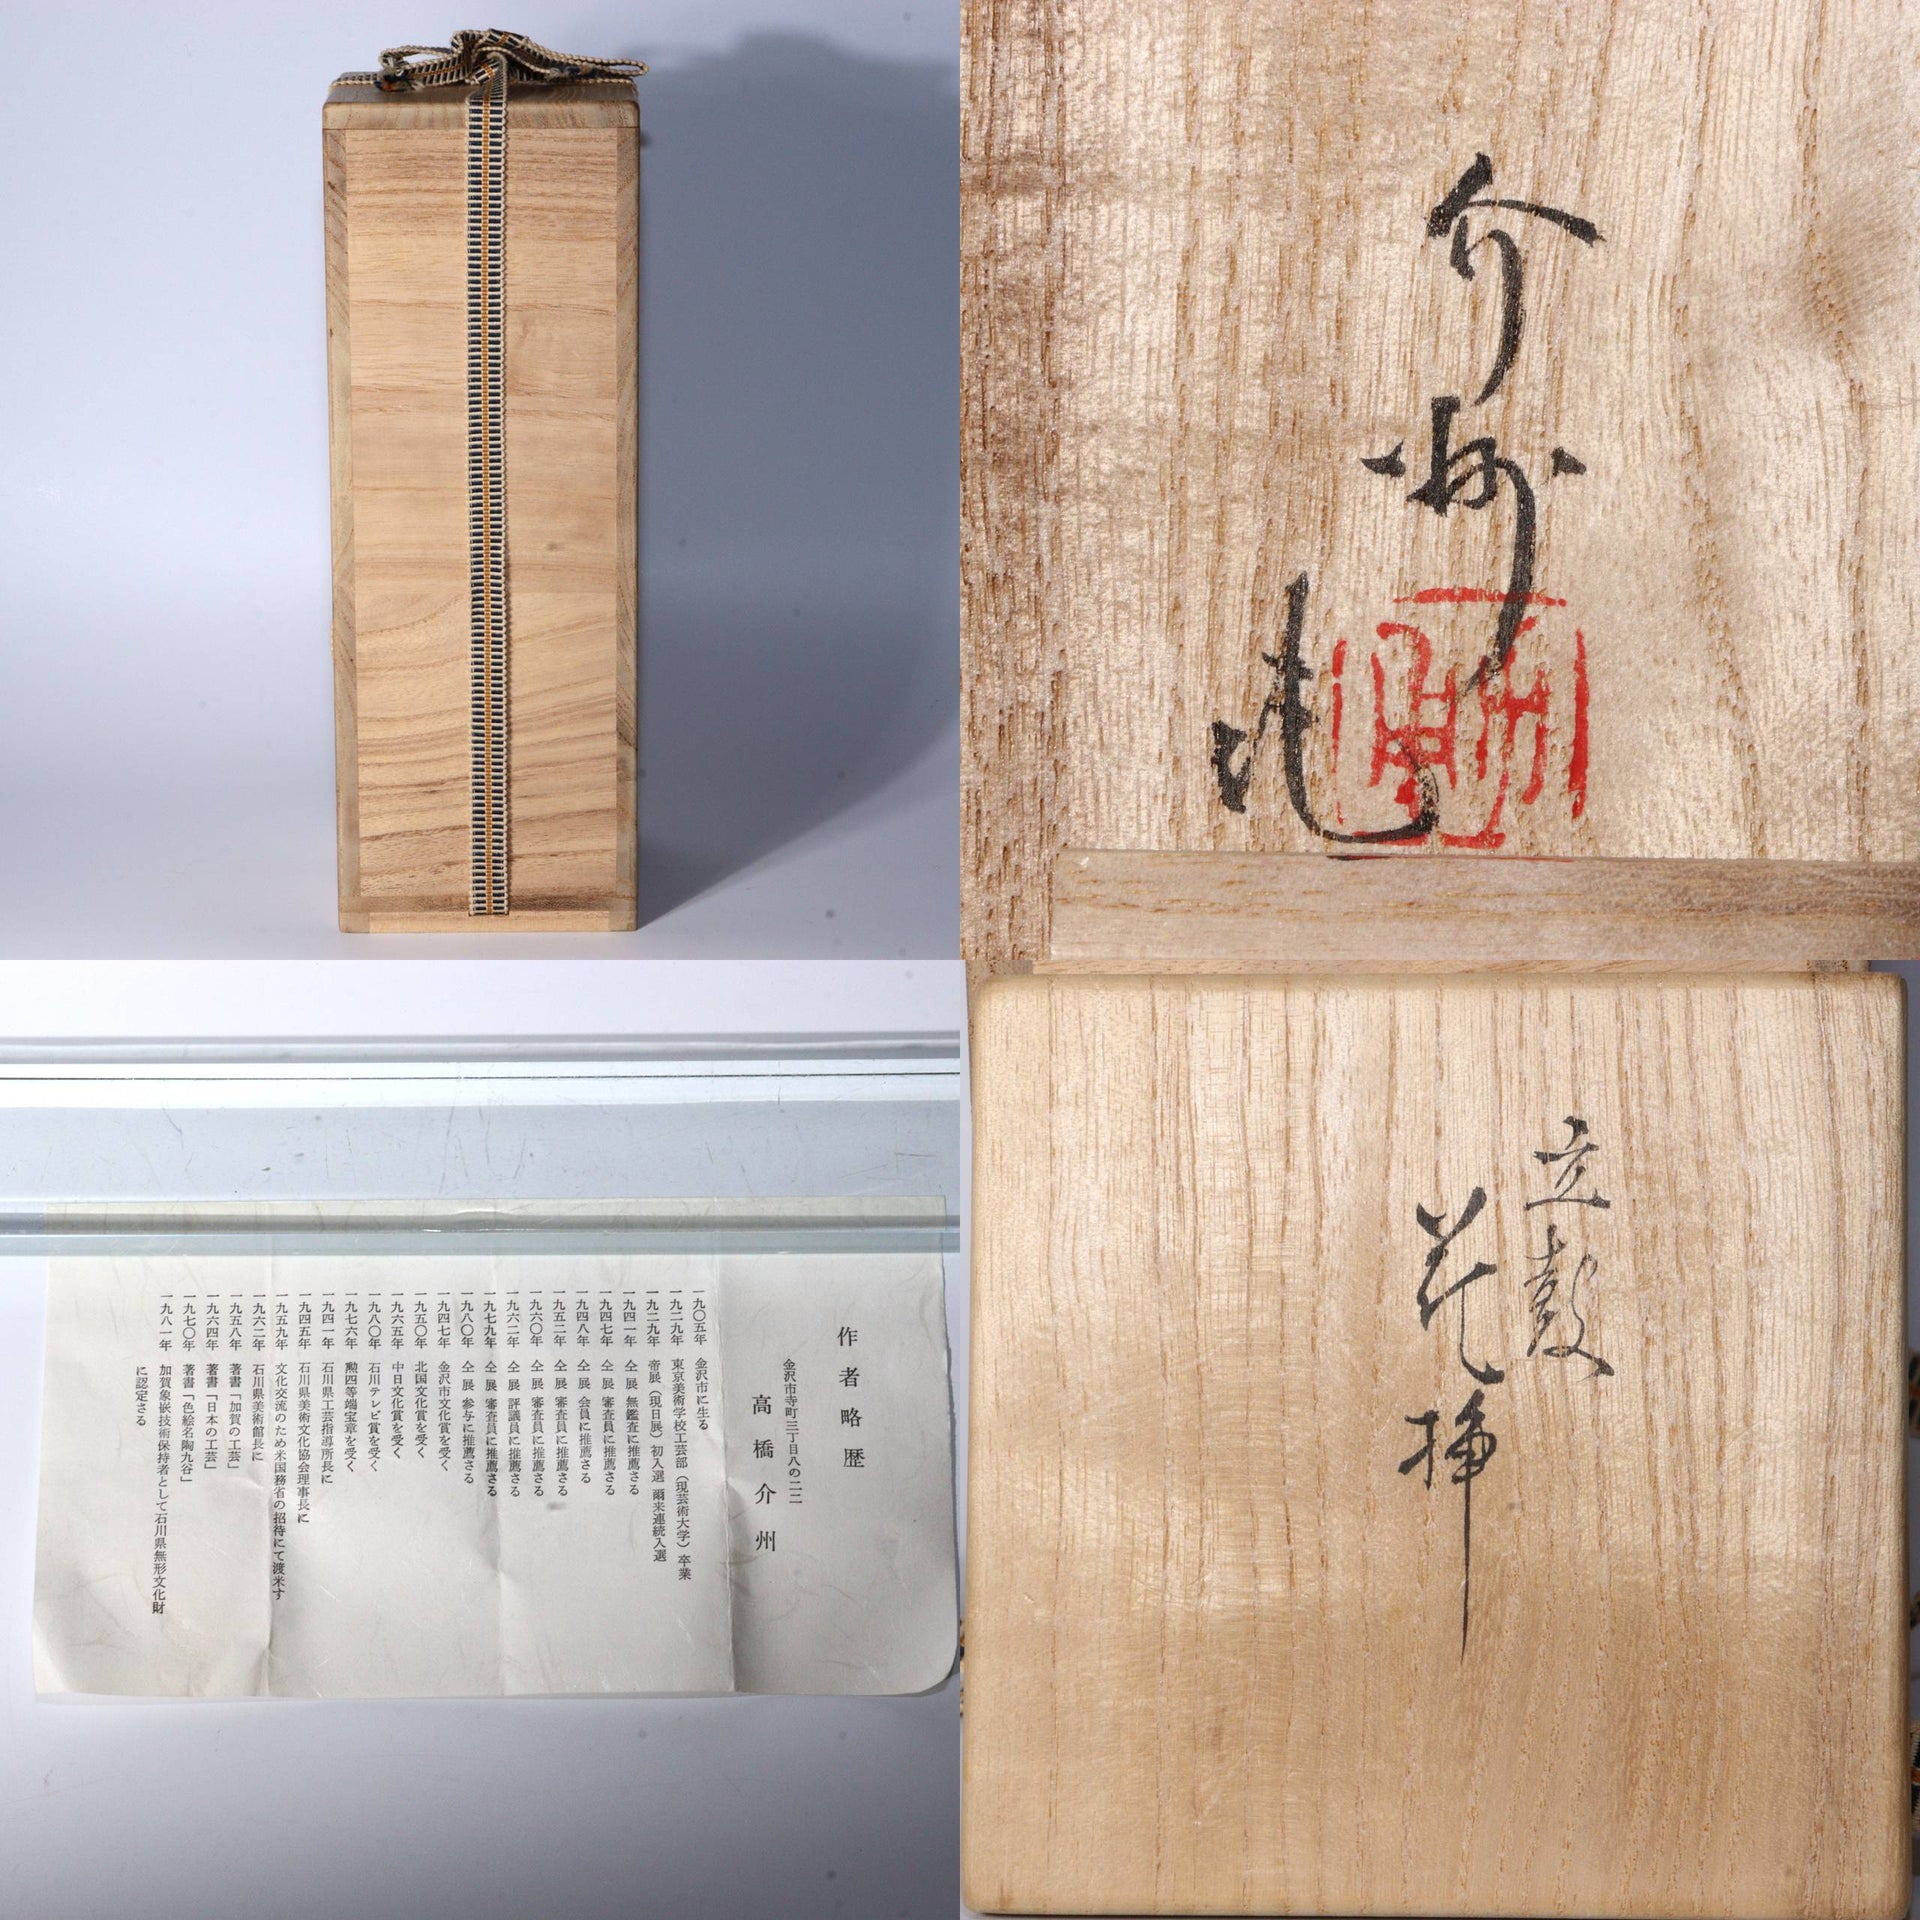 介州
造
作者略歴
金沢市寺町三丁目八の二二
高橋介州
一九〇五年 金沢市に生る
一九二九年 東京美術学校工芸部（現芸術大学）卒業
一九二九年 帝展（現日展）初入選 爾来連続入選
一九四一年 仝展 無鑑査に推薦さる
一九四七年 仝展 審査員に推薦さる
一九四八年 仝展 会員に推薦さる
一九五二年 仝展 審査員に推薦さる
一九六〇年 仝展 審査員に推薦さる
一九六二年 仝展 評議員に推薦さる
一九七九年 仝展 審査員に推薦さる
一九八〇年 仝展 参与に推薦さる
一九四七年 金沢市文化賞を受く
一九五〇年 北国文化賞を受く
一九六五年 中日文化賞を受く
一九八〇年 石川テレビ賞を受く
一九七六年 勲四等端宝章を受く
一九四一年 石川県工芸指導所長に
一九四五年 石川県美術文化協会理事長に
一九五九年 文化交流のため米国務省の招待にて渡米す
一九六二年 石川県美術館長に
一九五八年 著書「加賀の工芸」
一九六四年 著書「日本の工芸」
一九七〇年 著書「色絵名陶九谷」
一九八一年 加賀象嵌技術保持者として石川県無形文化財
に認定さる
立鼓
花挿